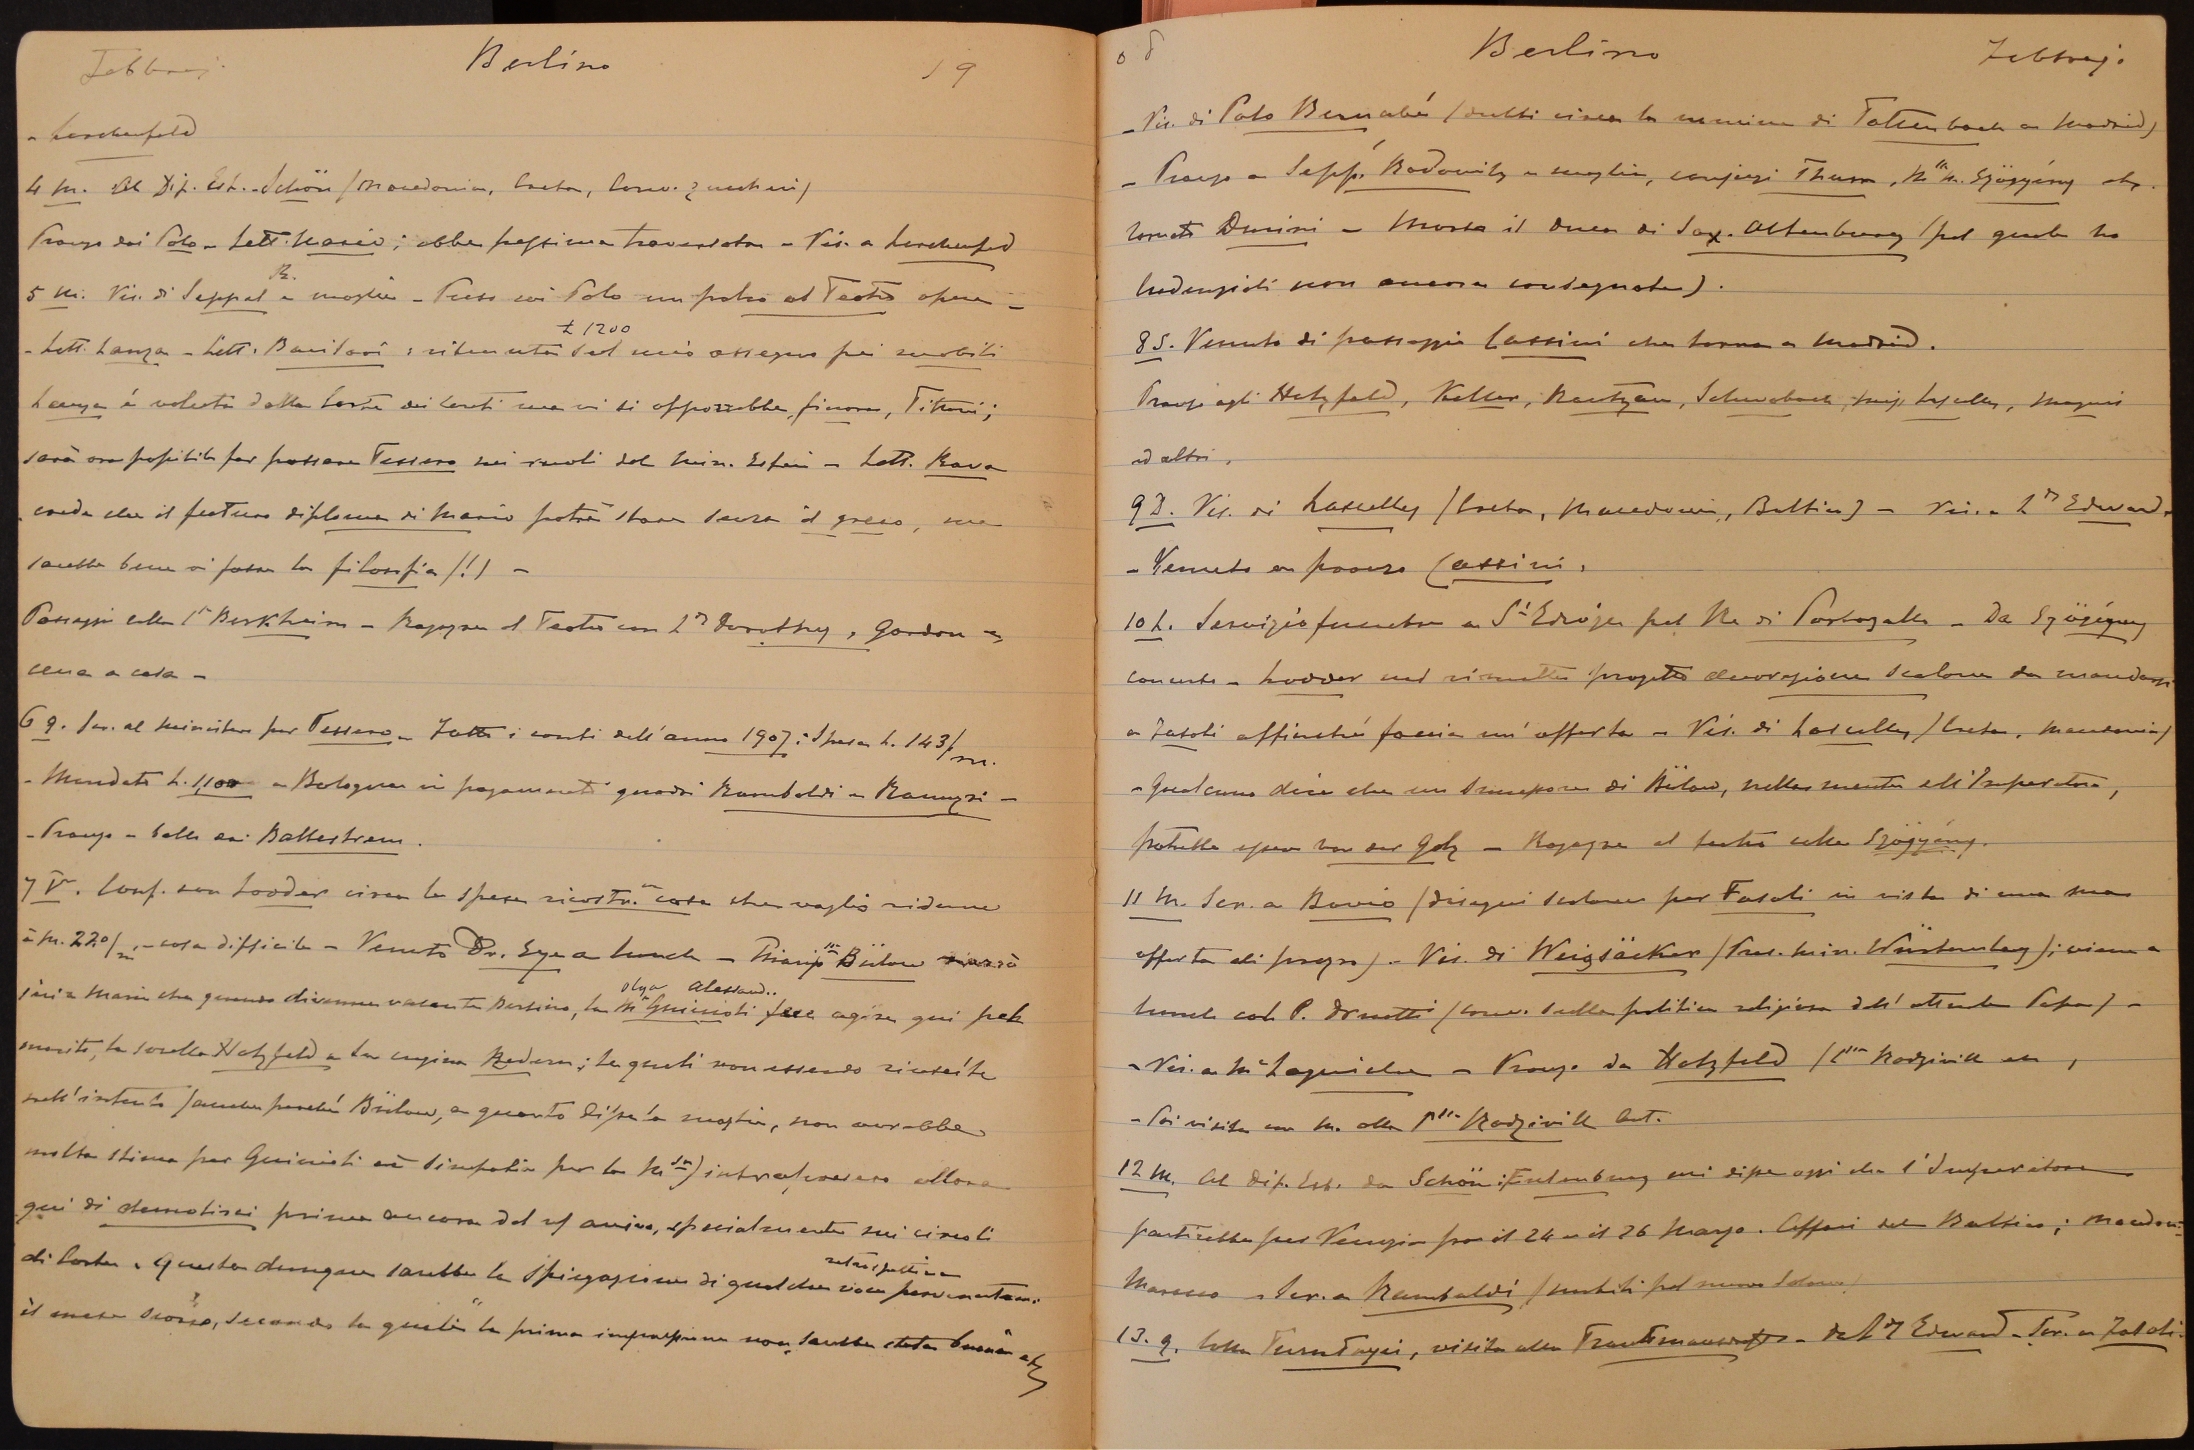 Febbraj. Berlino 19
- Lerchenfeld
4 M. Al Dip. Est. - Schön (Macedonia, Creta, Conv. zuccheri)
Pranzo dai Polo - Lett. Mario; ebbe pessima traversata - Vis. a Lerchenfed
5 M. Vis. di Seppel R. e moglie - Preso coi Polo un palco al Teatro opera -
- Lett. Lanza - Lett. : ritenuta £ 1200 sul mio assegno pei mobili
Lanza è voluta dalla Corte dei Conti ma vi si opporrebbe, finora, Tittoni;
sarà ora possibile far passare Tessero nei ruoli del Min. Esteri - Lett. Rava
crede che il futuro diploma di Mario potrà stare senza il greco, ma
sarebbe bene vi fosse la filosofia (!) -
Passeggi colla Berkheim - Ragazze al Teatro con Dorothy, Gordon e
cena a casa -
6 g. Scr. al ministero per Tessero - Fatto i conti dell'anno 1907: Spesa L. 143/m.
- Mandato L. 1,100 a Bologna in pagamento quadri Rambaldi e Ranuzzi -
- Pranzo - ballo dai Ballestrem.
7 V. Conf. con Lodder circa la spesa ricostr.ne casa che voglio ridurre
a M. 220/m - cosa difficile - Venuto Dr. Eye a lunch - Princip.ssa Bülow narrò
ieri a Maria che quando divenne vacante Berlino, la Mª Guiccioli Olga Alessand.. fece agire qui pel
marito, la sorella Hatzfeld e la cugina Redern; le quali non essendo riuscite
nell'intento (anche perché Bülow, a quanto disse la moglie, non avrebbe
molta stima per Guiccioli nè simpatia per la M.sa) intrapresero allora
qui di demolirci prima ancora del ns/ arrivo, specialmente nei circoli
di Corte. Questa dunque sarebbe la spiegazione di qualche voce retrospettiva pervenutami
il mese scorso, secondo la quale "la prima impressione non sarebbe stata buona etc
08 Berlino Febbraj.
- Vis. di Polo Bernabé (dubbi circa la nomina di Tattenbach a Madrid)
- Pranzo a Sepp. Radowitz e moglie, coniugi Thurn, M. Szögyény etc.
tornati Durini - Morto il duca di Sax. Altenburg (pel quale ho
credenziali non ancora consegnate).
8 S. Venuto di passaggio Cassini che torna a Madrid.
Pranzo agli Hatzfeld, Keller, Rantzau, Schwabach, Lascelles, Magnis
ed altri.
9 D. Vis. di Lascelles (Creta, Macedonia, Baltico) - Vis. a Edward.
- Venuto a pranzo Cassini.
10 L. Servizio funebre a St Edvige pel Re di Portogallo - Da Szögyény
concerto - Lodder mi rimette progetto decorazione scalone da mandarsi
a Fasoli affinché faccia un'offerta - Vis. di Lascelles (Creta, Macedonia)
- Qualcuno dice che un successore di Bülow, nella mente dell'Imperatore,
potrebbe essere von der Golz - Ragazze al teatro colle Szögyény.
11 M. Scr. a Bovio (disegni scalone per Fasoli in vista di una sua
offerta di prezzo) - Vis. di Weizsäcker (Pres. Min. Würtemberg); viene a
lunch col P. (conv. sulla politica religiosa dell'attuale Papa) -
- Vis. a Mª - Pranzo da Hatzfeld (P.ssa Radziwill etc,
- Poi visita con M. alla P.ssa Radziwill Ant.
12 M. Al Dip. Est. da Schön: Eulenburg mi disse oggi che l'Imperatore
partirebbe per Venezia fra il 24 e il 26 Marzo. Affari del Baltico; Macedoni-
Marocco - Scr. a Rambaldi (mobili pel nuovo salone)
13. g. Colla , visita alla Trauttmansdorff - da Edward - Scr. a Fasoli.